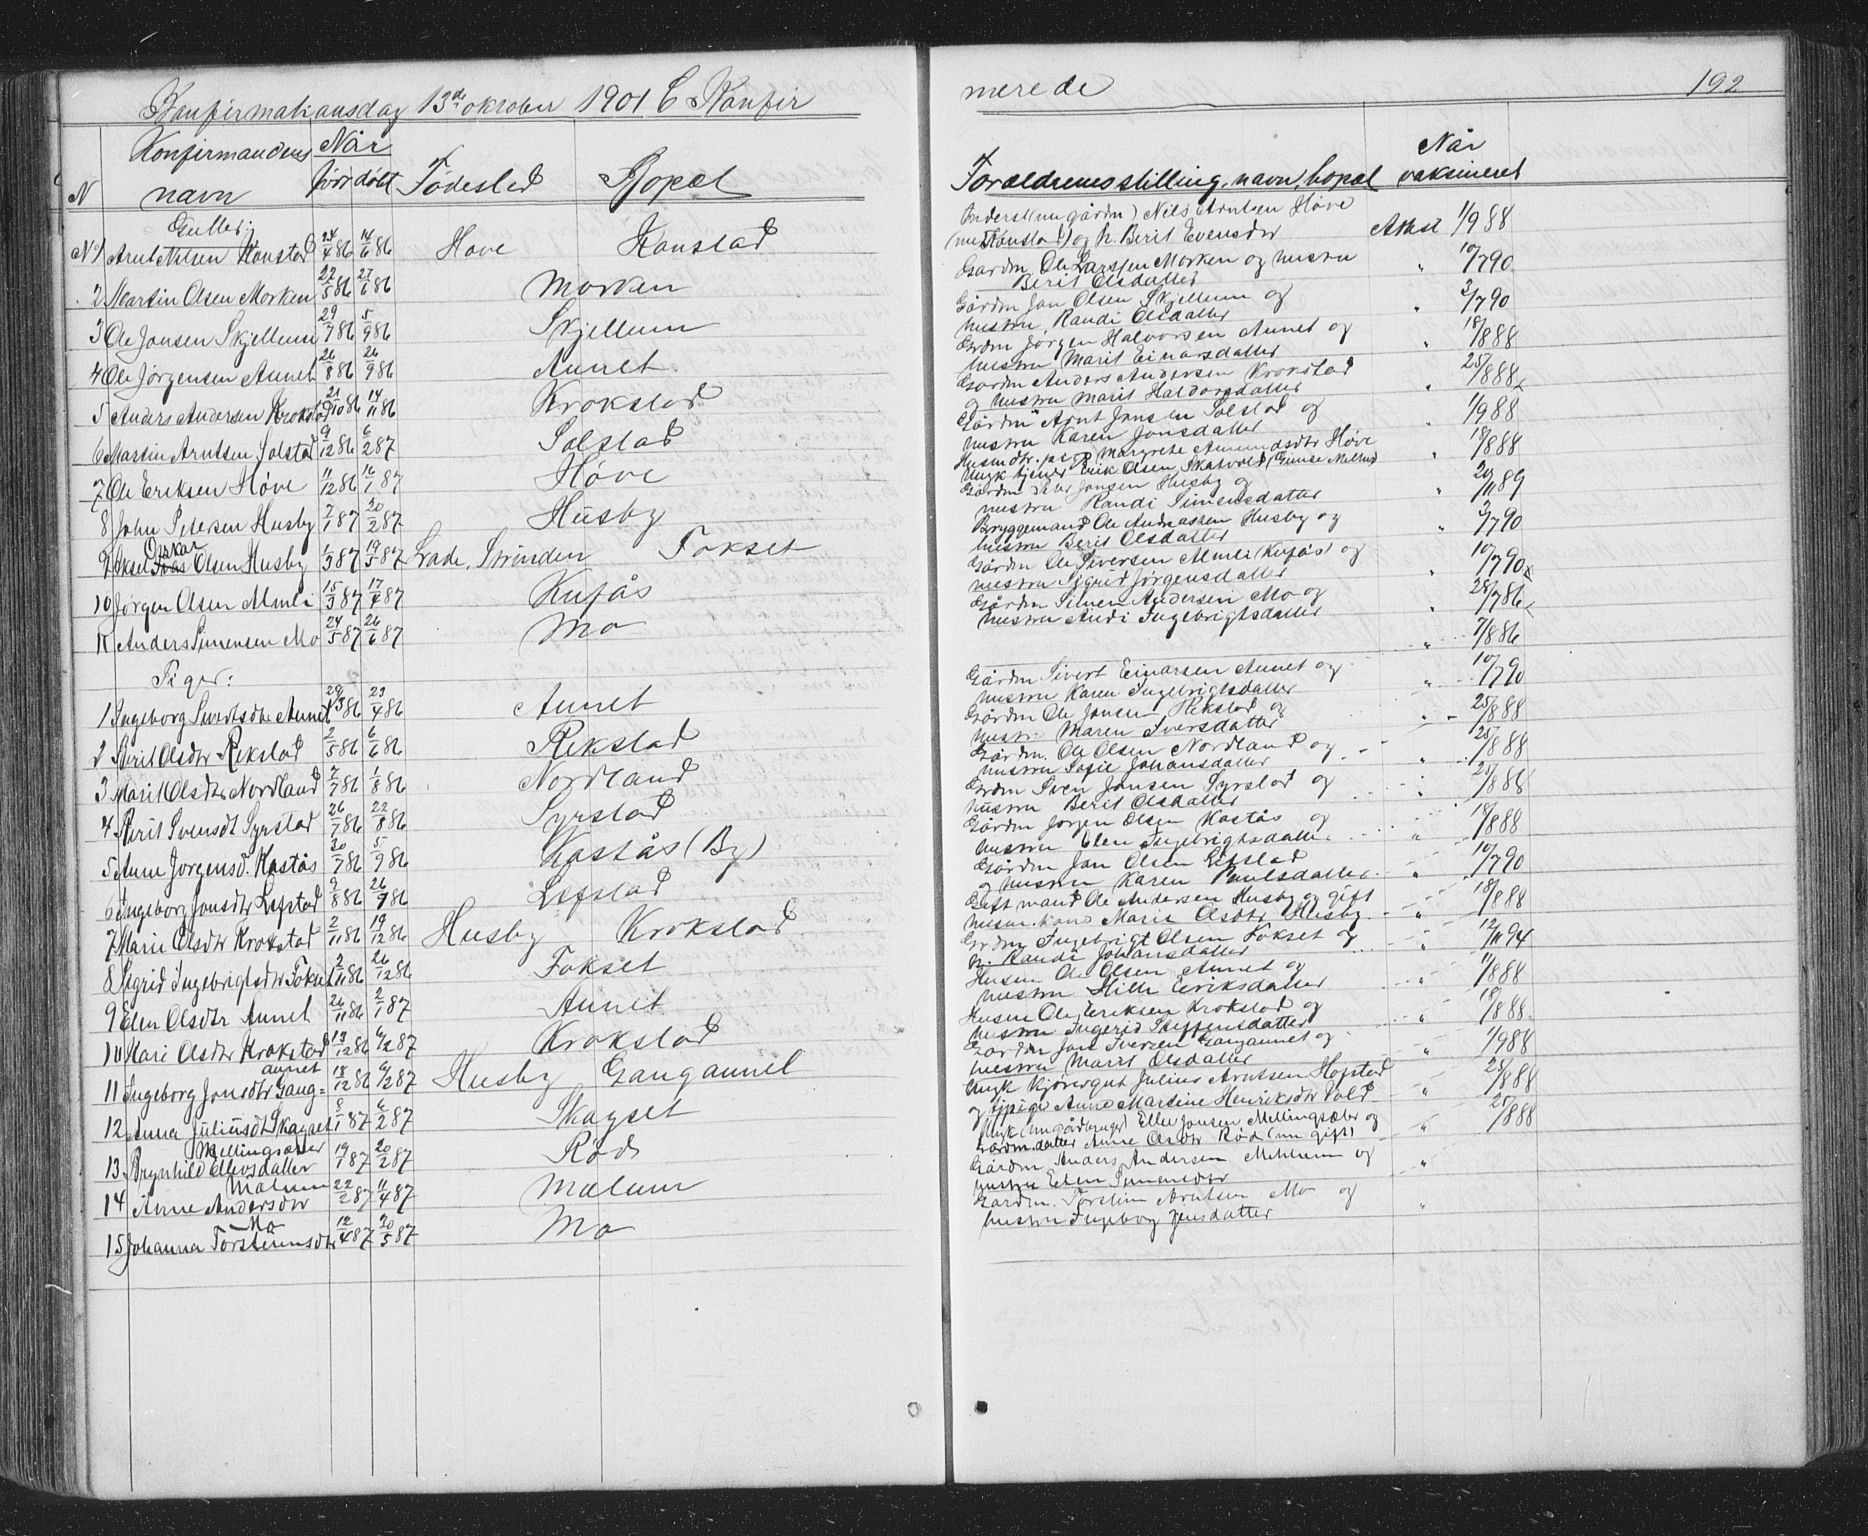 Konfirmationsdag 13de oktober 1901 C Konfir
Konfirmandens Når
N navn født døbt Fødested Bopæl
Gutter:
No 1 Arnt Nilsen Konstad 24/4 86 14/6 86 Høve Konstad
2 Martin Olsen Morken 22/5 86 27/6 86 Morken
3 Ole Jonsen Skjellum 29/7 86 5/9 86 Skjellum
4 Ole Jørgensen Aunet 26/8 86 26/9 86 Aunet
5 Anders Andersen Krokstad 21/10 86 14/11 86 Krokstad
6 Martin Arntsen Solstad 9/12 86 6/2 87 Solstad
7 Ole Eriksen Høve 11/12 86 16/1 87 Høve
8 John Petersen Husby 2/1 87 20/2 87 Husby
Oskar
9 Aksel Olsen Husby 1/3 87 19/5 87 Lade, Strinden Fokset
10 Jørgen Olsen Almli 15/3 87 17/4 87 Kufås
11 Anders Simensen Mo 24/5 87 26/6 87 Mo
Piger:
1 Ingeborg Sivertsdtr Aunet 29/3 86 23/4 86 Aunet
2 Berit Olsdtr Rekstad 2/5 86 6/6 86 Rekstad
3 Marit Olsdtr Nordland 2/7 86 1/8 86 Nordland
4 Berit Svensdt Syrstad 26/7 86 22/8 86 Syrstad
5 Anne Jørgensd. Kastås 30/7 86 5/9 86 Kastås (By)
6 Ingeborg Jonsdtr Lefstad 9/8 86 26/9 86 Lefstad
7 Marie Olsdtr Krokstad 2/11 86 19/12 86 Husby Krokstad
8 Sigrid Ingebrigtsdtr Fokset 2/11 86 26/12 86 Fokset
9 Elen Olsdtr Aunet 26/11 86 2/1 87 Aunet
10 Mari Olsdtr Krokstad 13/12 86 6/2 87 Krokstad
aunet
11 Ingeborg Jonsdtr Gang= 18/12 86 6/2 87 Husby Gangaunet
12 Anna Juliusdt Skagset 8/1 87 6/2 87 Skagset
Mellingsæter
13 Brynhild Ellevsdatter 19/1 87 20/2 87 Rød
Mælum
14 Anne Andersdtr 22/2 87 11/4 87 Mælum
Mo
15 Johanna Torsteinsdtr 12/4 87 20/5 87 Mo
merede 192
Når
Forældrenes stilling, navn, bopæl vaksineret
Inderst (nu gårdm) Nils Arntsen Høve
(nu Konstad) og h. Berit Evensdtr Attest 1/9 88
Gårdm Ole Larssen Morken og hustru
Berit Olsdatter " 10/7 90
Gårdm Jon Olsen Skjellum og
hustru Randi Olsdatter " 3/7 90
Grdm Jørgen Halvorsen Aunet og
hustru Marit Einarsdatter " 18/8 88
Gardm Anders Andersen Krokstad
og hustru Marit Haldorsdatter " 25/8 88
Gårdm Arnt Jonsen Solstad og
hustru Karen Jonsdatter " 1/9 88
Husmdtr. pige Margrete Amundsdtr Høve
Ungk tjener Erik Olsen Skatvold (Gimse Melhus) " 18/8 88
Gårdm Peter Jonsen Husby og
hustru Randi Simensdatter " 20/11 89
Bryggemand Ole Andreassen Husby og
hustru Berit Olsdatter " 3/7 90
Gårdm Ole Siversen Almli (Kufås) og
hustru Sigrid Jørgensdatter " 10/7 90
Gårdm Simen Andersen Mo og
hustru Andi Ingebrigtsdatter " 28/7 86
" 7/8 86
Gårdm Sivert Einarsen Aunet og
hustru Karen Ingebrigtsdatter " 10/7 90
Gårdm Ole Jonsen Rekstad og
hustru Maren Iversdatter " 25/8 88
Gårdm. Ole Olsen Nordland og
hustru Sofie Johansdatter " 25/8 88
Grdm Sven Jonsen Syrstad og
hustru Berit Olsdatter " 25/8 88
Gårdm Jørgen Olsen Kastås og
hustru Elen Ingebrigtsdatter " 18/8 88
Gårdm Jon Olsen Lefstad
og hustru Karen Paulsdatter " 10/7 90
Gift mand Ole Andersen Husby og gift
husm. kone Marie Olsdtr Husby " 18/8 88
Grdm Ingebrigt Olsen Fokset og
h. Randi Johansdatter " 12/11 94
Husm Ole Olsen Aunet og
hustru Mille Eriksdatter " 11/8 88
Husm Ole Eriksen Krokstad og
hustru Ingerid Steffensdatter " 18/8 88
Gårdm Jon Iversen Gangaunet og
hustru Marit Olsdatter " 1/9 88
Ungk Kjøresvut Julius Arntsen Hofstad
og tjpige Anne Martine Henriksdtr Vold " 25/8 88
Ungk (nu gårdbruger) Ellev Jonsen Mellingsæter og
Gårdm.datter Anne Olsdtr Rød (nu gift) " 25/8 88
Gårdm Anders Andersen Mehlum og
hustru Elen Simensdtr "
Gårdm. Torstein Arntsen Mo og
hustru Ingeborg Jensdatter "